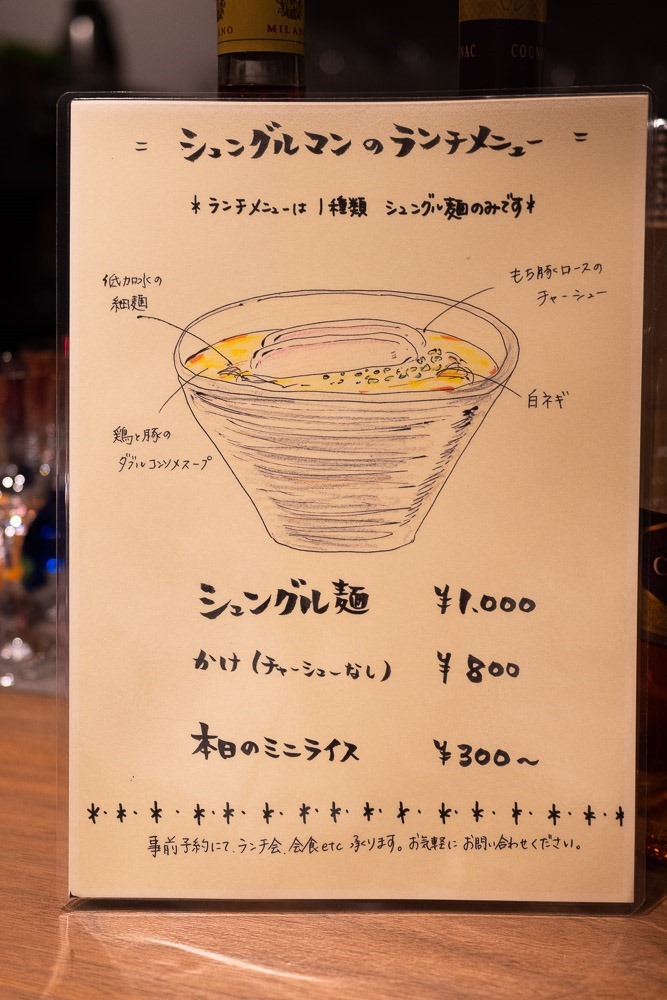 MILANO
COGNAC
= シュングルマンのランチメニュー =
*ランチメニューは1種類 シュングル麺のみです*
低加水の
細麺
もち豚ロースの
チャーシュー
白ネギ
鶏と豚の
ダブルコンソメスープ
シュングル麺 ¥1.000
かけ(チャーシューなし) ¥800
本日のミニライス ¥300〜
事前予約にて、ランチ会、会食etc 承ります。お気軽にお問い合わせください。